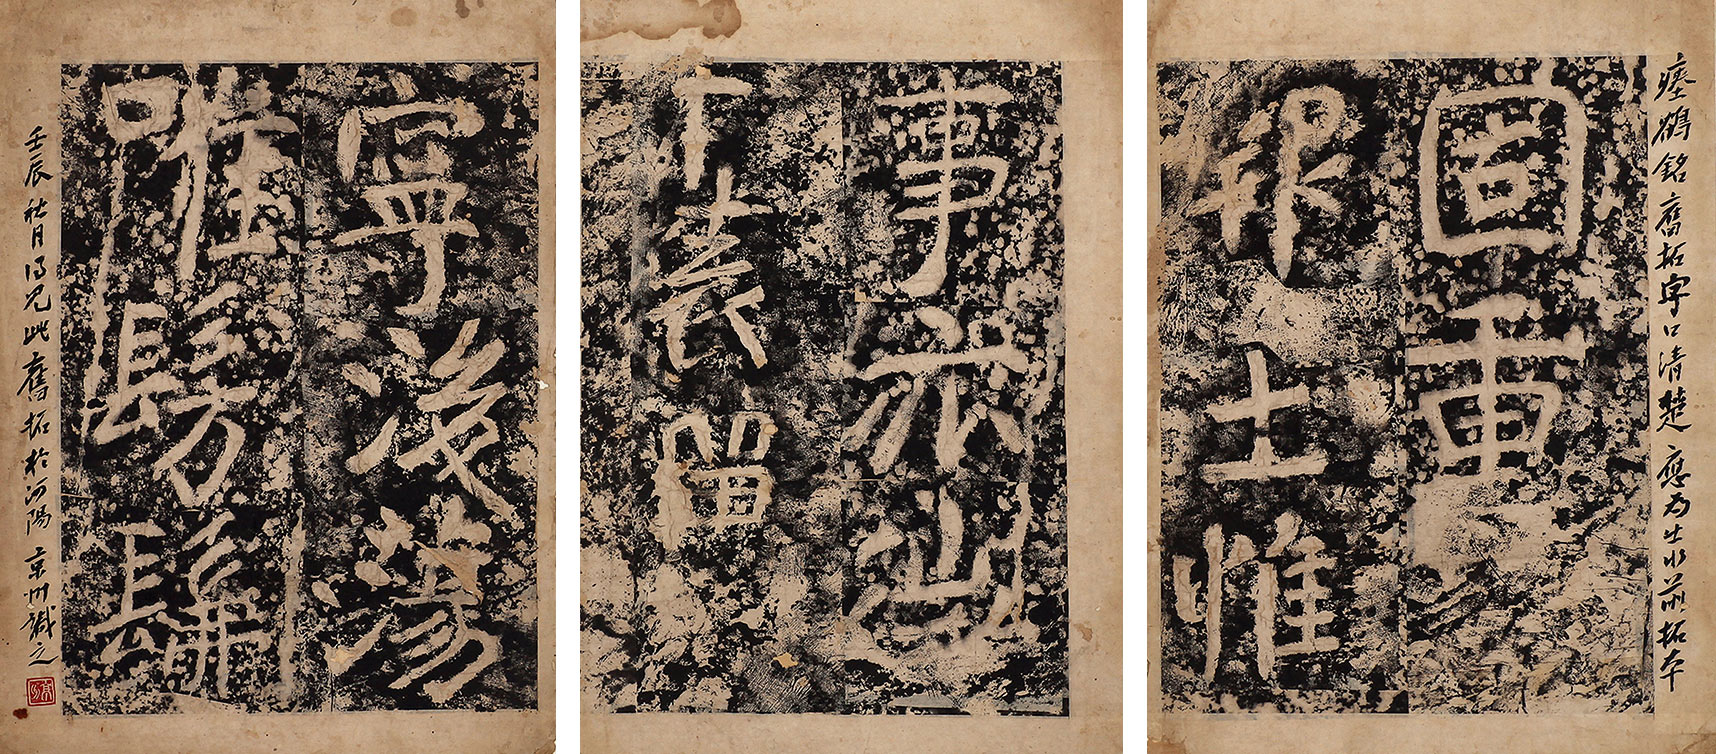 瘞鶴銘舊拓字口清楚應為出水前拓本
固重
土惟
事亦
表留
寧後蕩
唯髣髴
壬辰秋月得見此舊拓於河陽京州識之